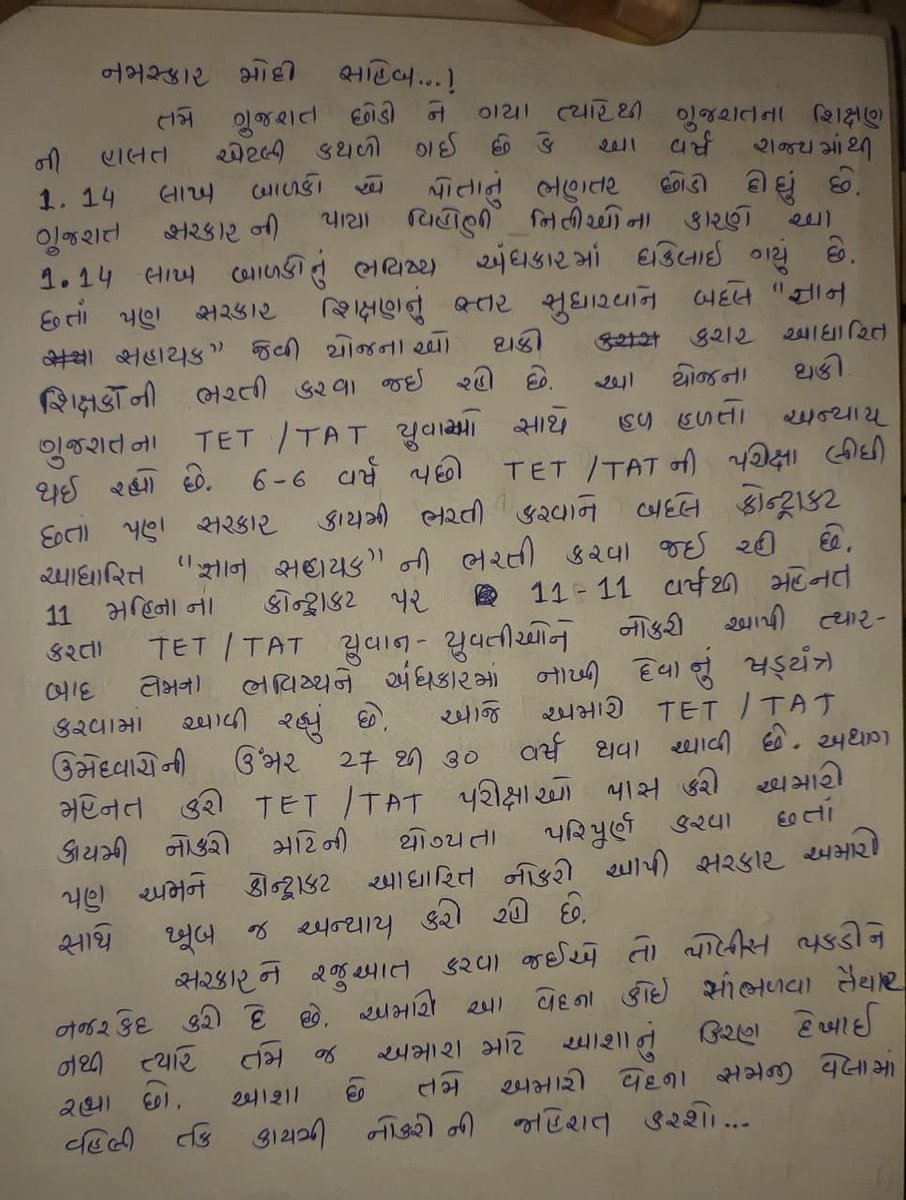 નમસ્કાર મોદી સાહેબ...!
તમે ગુજરાત છોડી ને ગયા ત્યારથી ગુજરાતના શિક્ષણ
ની હાલત એટલી કથળી ગઈ છે કે આ વર્ષે રાજ્યમાંથી
1.14 લાખ બાળકો એ પોતાનું ભણતર છોડી દીધું છે.
ગુજરાત સરકાર ની પાયા વિહોણી નિતીઓના કારણે આ
1.14 લાખ બાળકોનું ભવિષ્ય અંધકારમાં ધકેલાઈ ગયું છે.
છતાં પણ સરકાર શિક્ષણનું સ્તર સુધારવાને બદલે "જ્ઞાન
સહાયક" જેવી યોજનાઓ થકી કરાર આધારિત
શિક્ષકોની ભરતી કરવા જઈ રહી છે. આ યોજના થકી
ગુજરાતના TET / TAT યુવાઓ સાથે હળ હળતો અન્યાય
થઈ રહ્યો છે. 6-6 વર્ષ પછી TET / TAT ની પરીક્ષા લીધી
છતાં પણ સરકાર કાયમી ભરતી કરવાને બદલે કોન્ટ્રાકટ
આધારિત "જ્ઞાન સહાયક" ની ભરતી કરવા જઈ રહી છે.
11 મહિનાના કોન્ટ્રાકટ પર 11-11 વર્ષથી મહેનત
કરતા TET / TAT યુવાન-યુવતીઓને નોકરી આપી ત્યાર-
બાદ તેમના ભવિષ્યને અંધકારમાં નાખી દેવાનું ષડ્યંત્ર
કરવામાં આવી રહ્યું છે. આજે અમારી TET / TAT
ઉમેદવારોની ઉંમર 27 થી 30 વર્ષ થવા આવી છે. અથાગ
મહેનત કરી TET / TAT પરીક્ષાઓ પાસ કરી અમારી
કાયમી નોકરી માટેની યોગ્યતા પરિપૂર્ણ કરવા છતાં
પણ અમને કોન્ટ્રાકટ આધારિત નોકરી આપી સરકાર અમારી
સાથે ખૂબ જ અન્યાય કરી રહી છે.
સરકારને રજુઆત કરવા જઈએ તો પોલીસ પકડીને
નજરકેદ કરી દે છે. અમારી આ વેદના કોઈ સાંભળવા તૈયાર
નથી ત્યારે તમે જ અમારા માટે આશાનું કિરણ દેખાઈ
રહ્યા છો. આશા છે તમે અમારી વેદના સમજી વેલામાં
વહેલી તકે કાયમી નોકરી ની જાહેરાત કરશો...